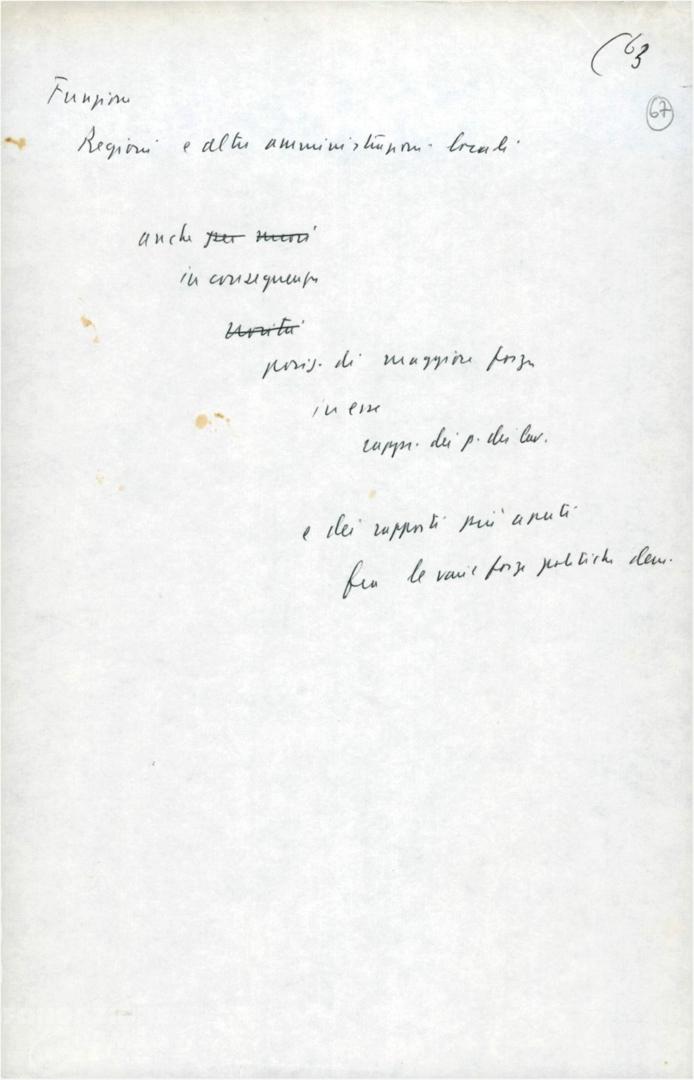 (63
67
Funzione
Regioni e altre amministrazioni locali
anche per nuovi
in conseguenza
Novità
posiz. di maggiore forza
in esse
rappr. dei p. dei lav.
e dei rapporti più aperti
fra le varie forze politiche dem.